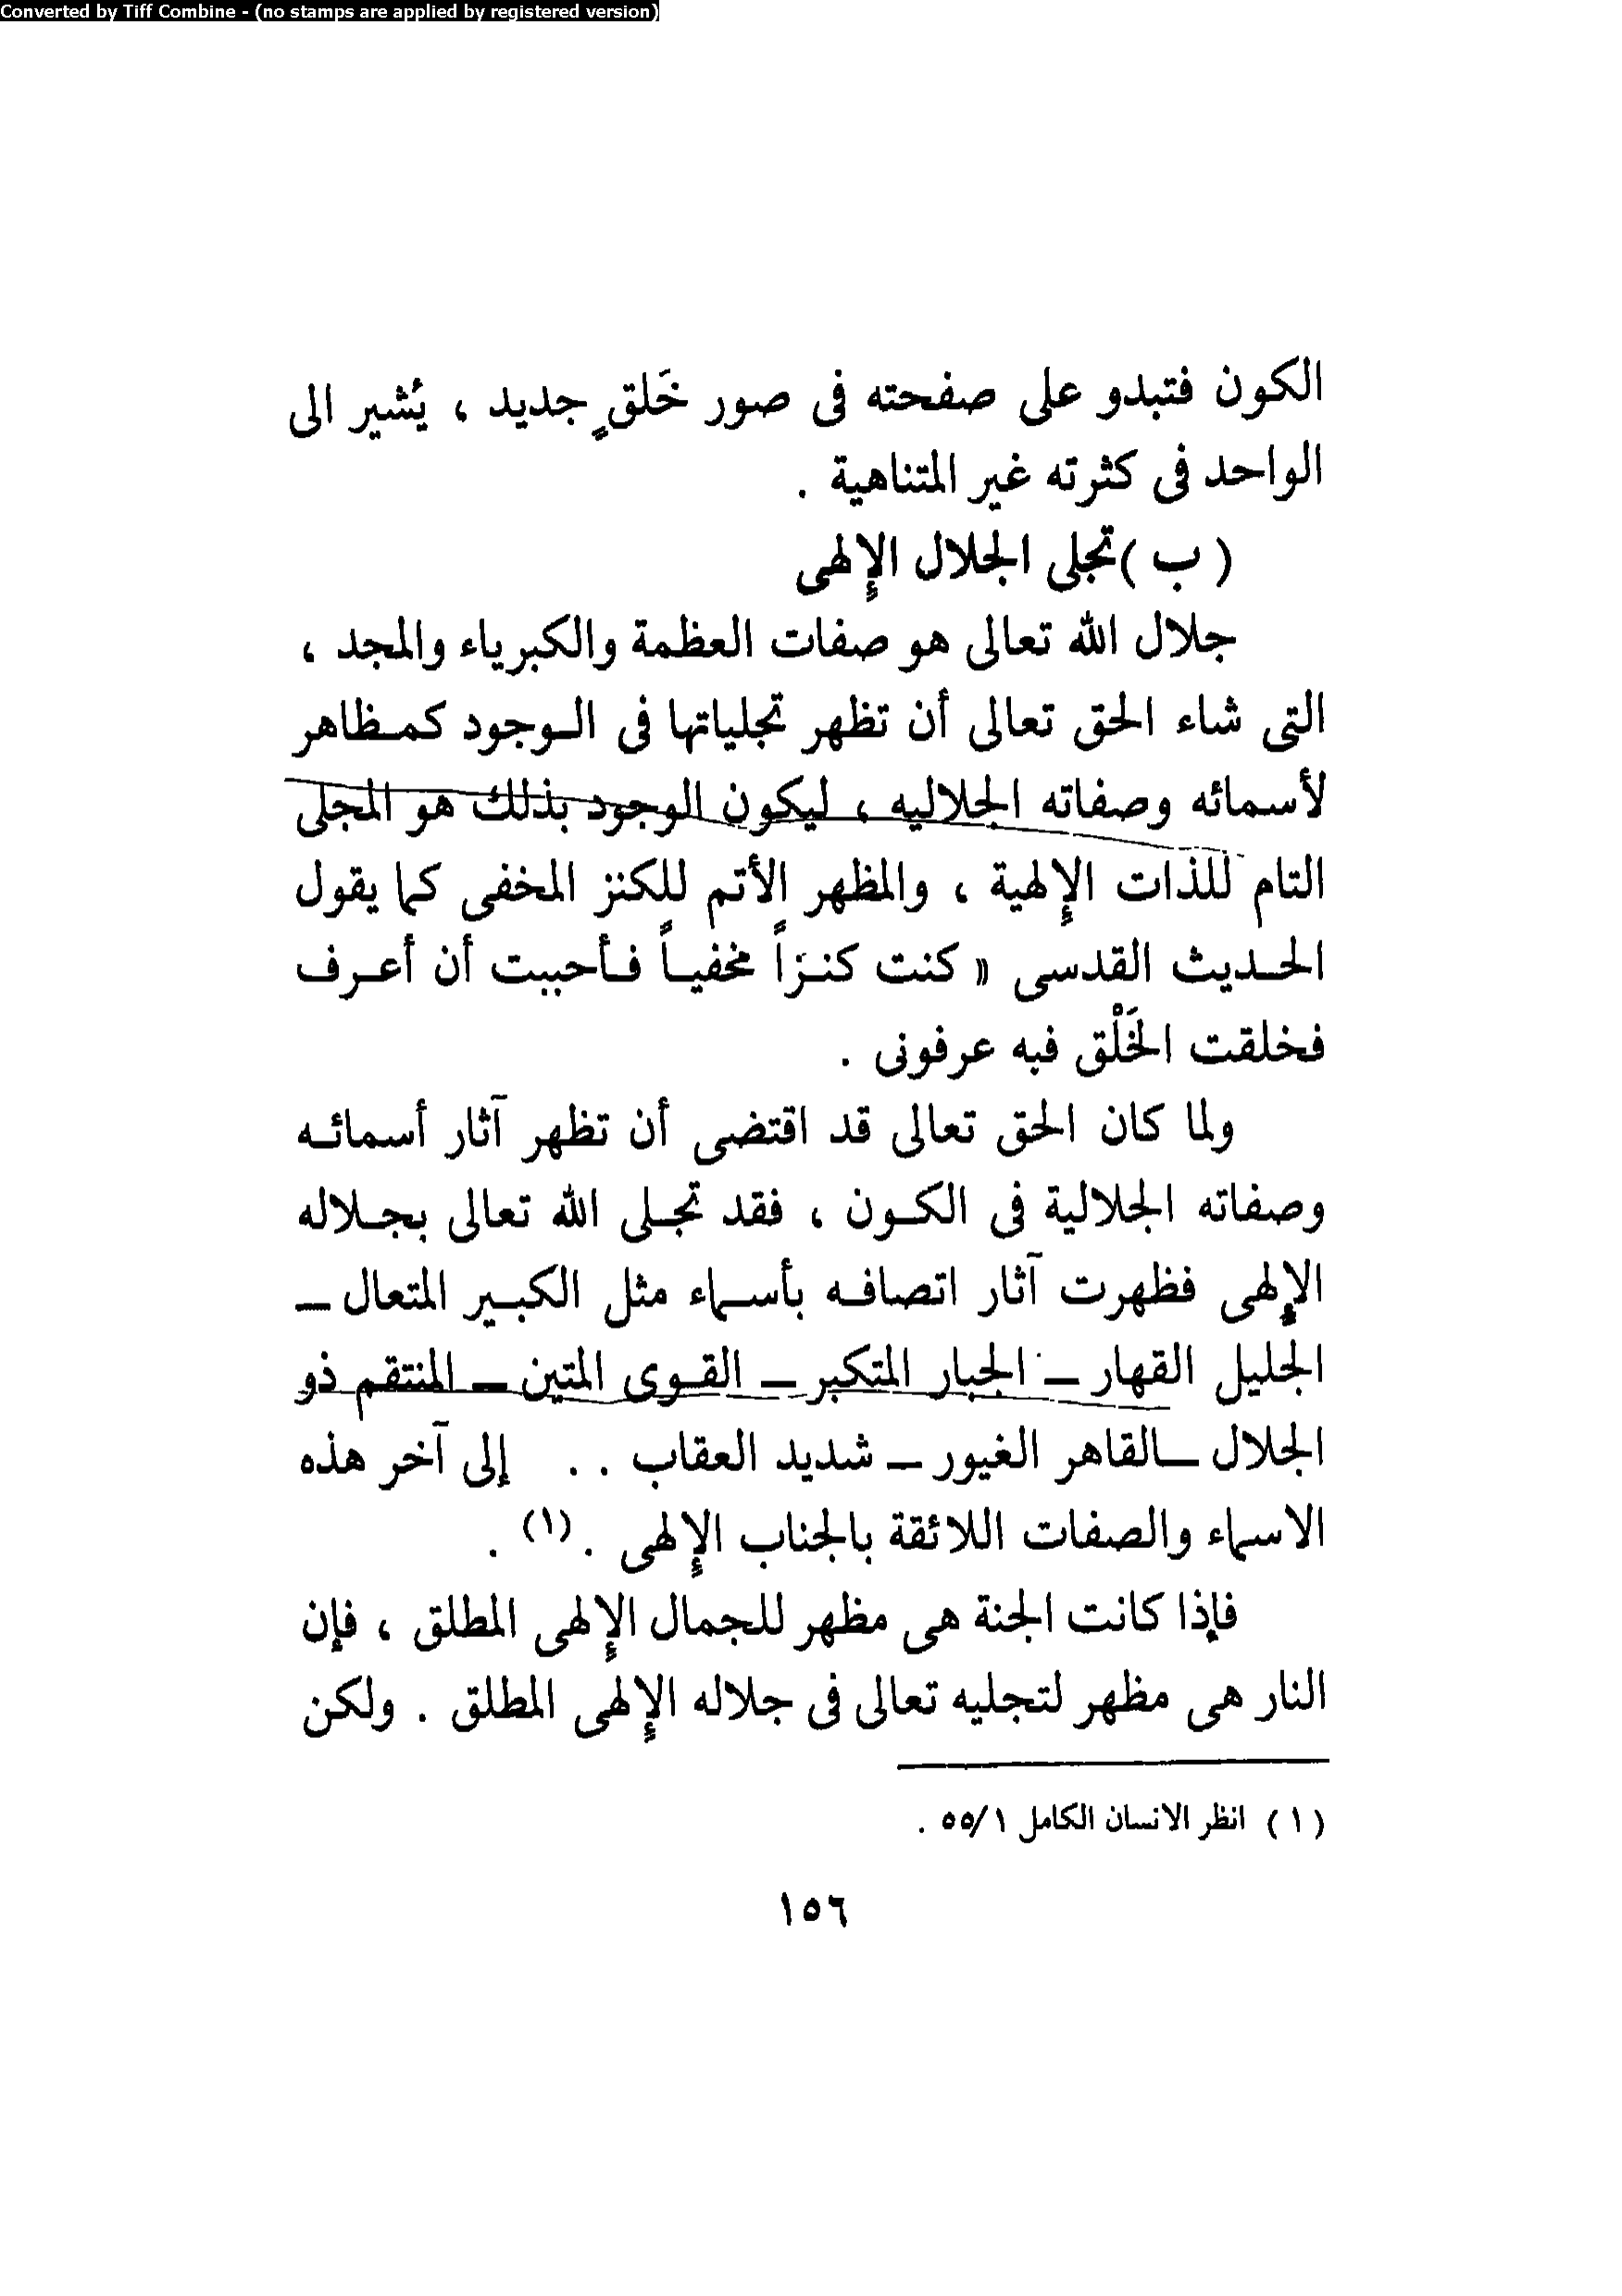 Converted by Tiff Combine - (no stamps are applied by registered version)
الكون فتبدو على صفحته فى صور خَلقٍ جديد ، يُشير الى
الواحد فى كثرته غير المتناهية .
( ب )تجلى الجلال الإلهى
جلال الله تعالى هو صفات العظمة والكبرياء والمجد ،
التى شاء الحق تعالى أن تظهر تجلياتها فى الوجود كمظاهر
لأسمائه وصفاته الجلاليه ، ليكون الوجود بذلك هو المجلى
التام للذات الإلهية ، والمظهر الأتم للكنز المخفى كما يقول
الحديث القدسى « كنت كنزاً مخفياً فأحببت أن أعرف
فخلقت الخَلْق فبه عرفونى .
ولما كان الحق تعالى قد اقتضى أن تظهر آثار أسمائه
وصفاته الجلالية فى الكون ، فقد تجلى الله تعالى بجلاله
الإلهى فظهرت آثار اتصافه بأسماء مثل الكبير المتعال ــ
الجليل القهار ــ الجبار المتكبر ــ القوى المتين ــ المنتقم ذو
الجلال ــالقاهر الغيور ــ شديد العقاب . . إلى آخر هذه
الاسماء والصفات اللائقة بالجناب الإلهى .(١) .
فإذا كانت الجنة هى مظهر للجمال الإلهى المطلق ، فإن
النار هى مظهر لتجليه تعالى فى جلاله الإلهى المطلق . ولكن
(١) انظر الانسان الكامل ٥٥/١ .
١٥٦